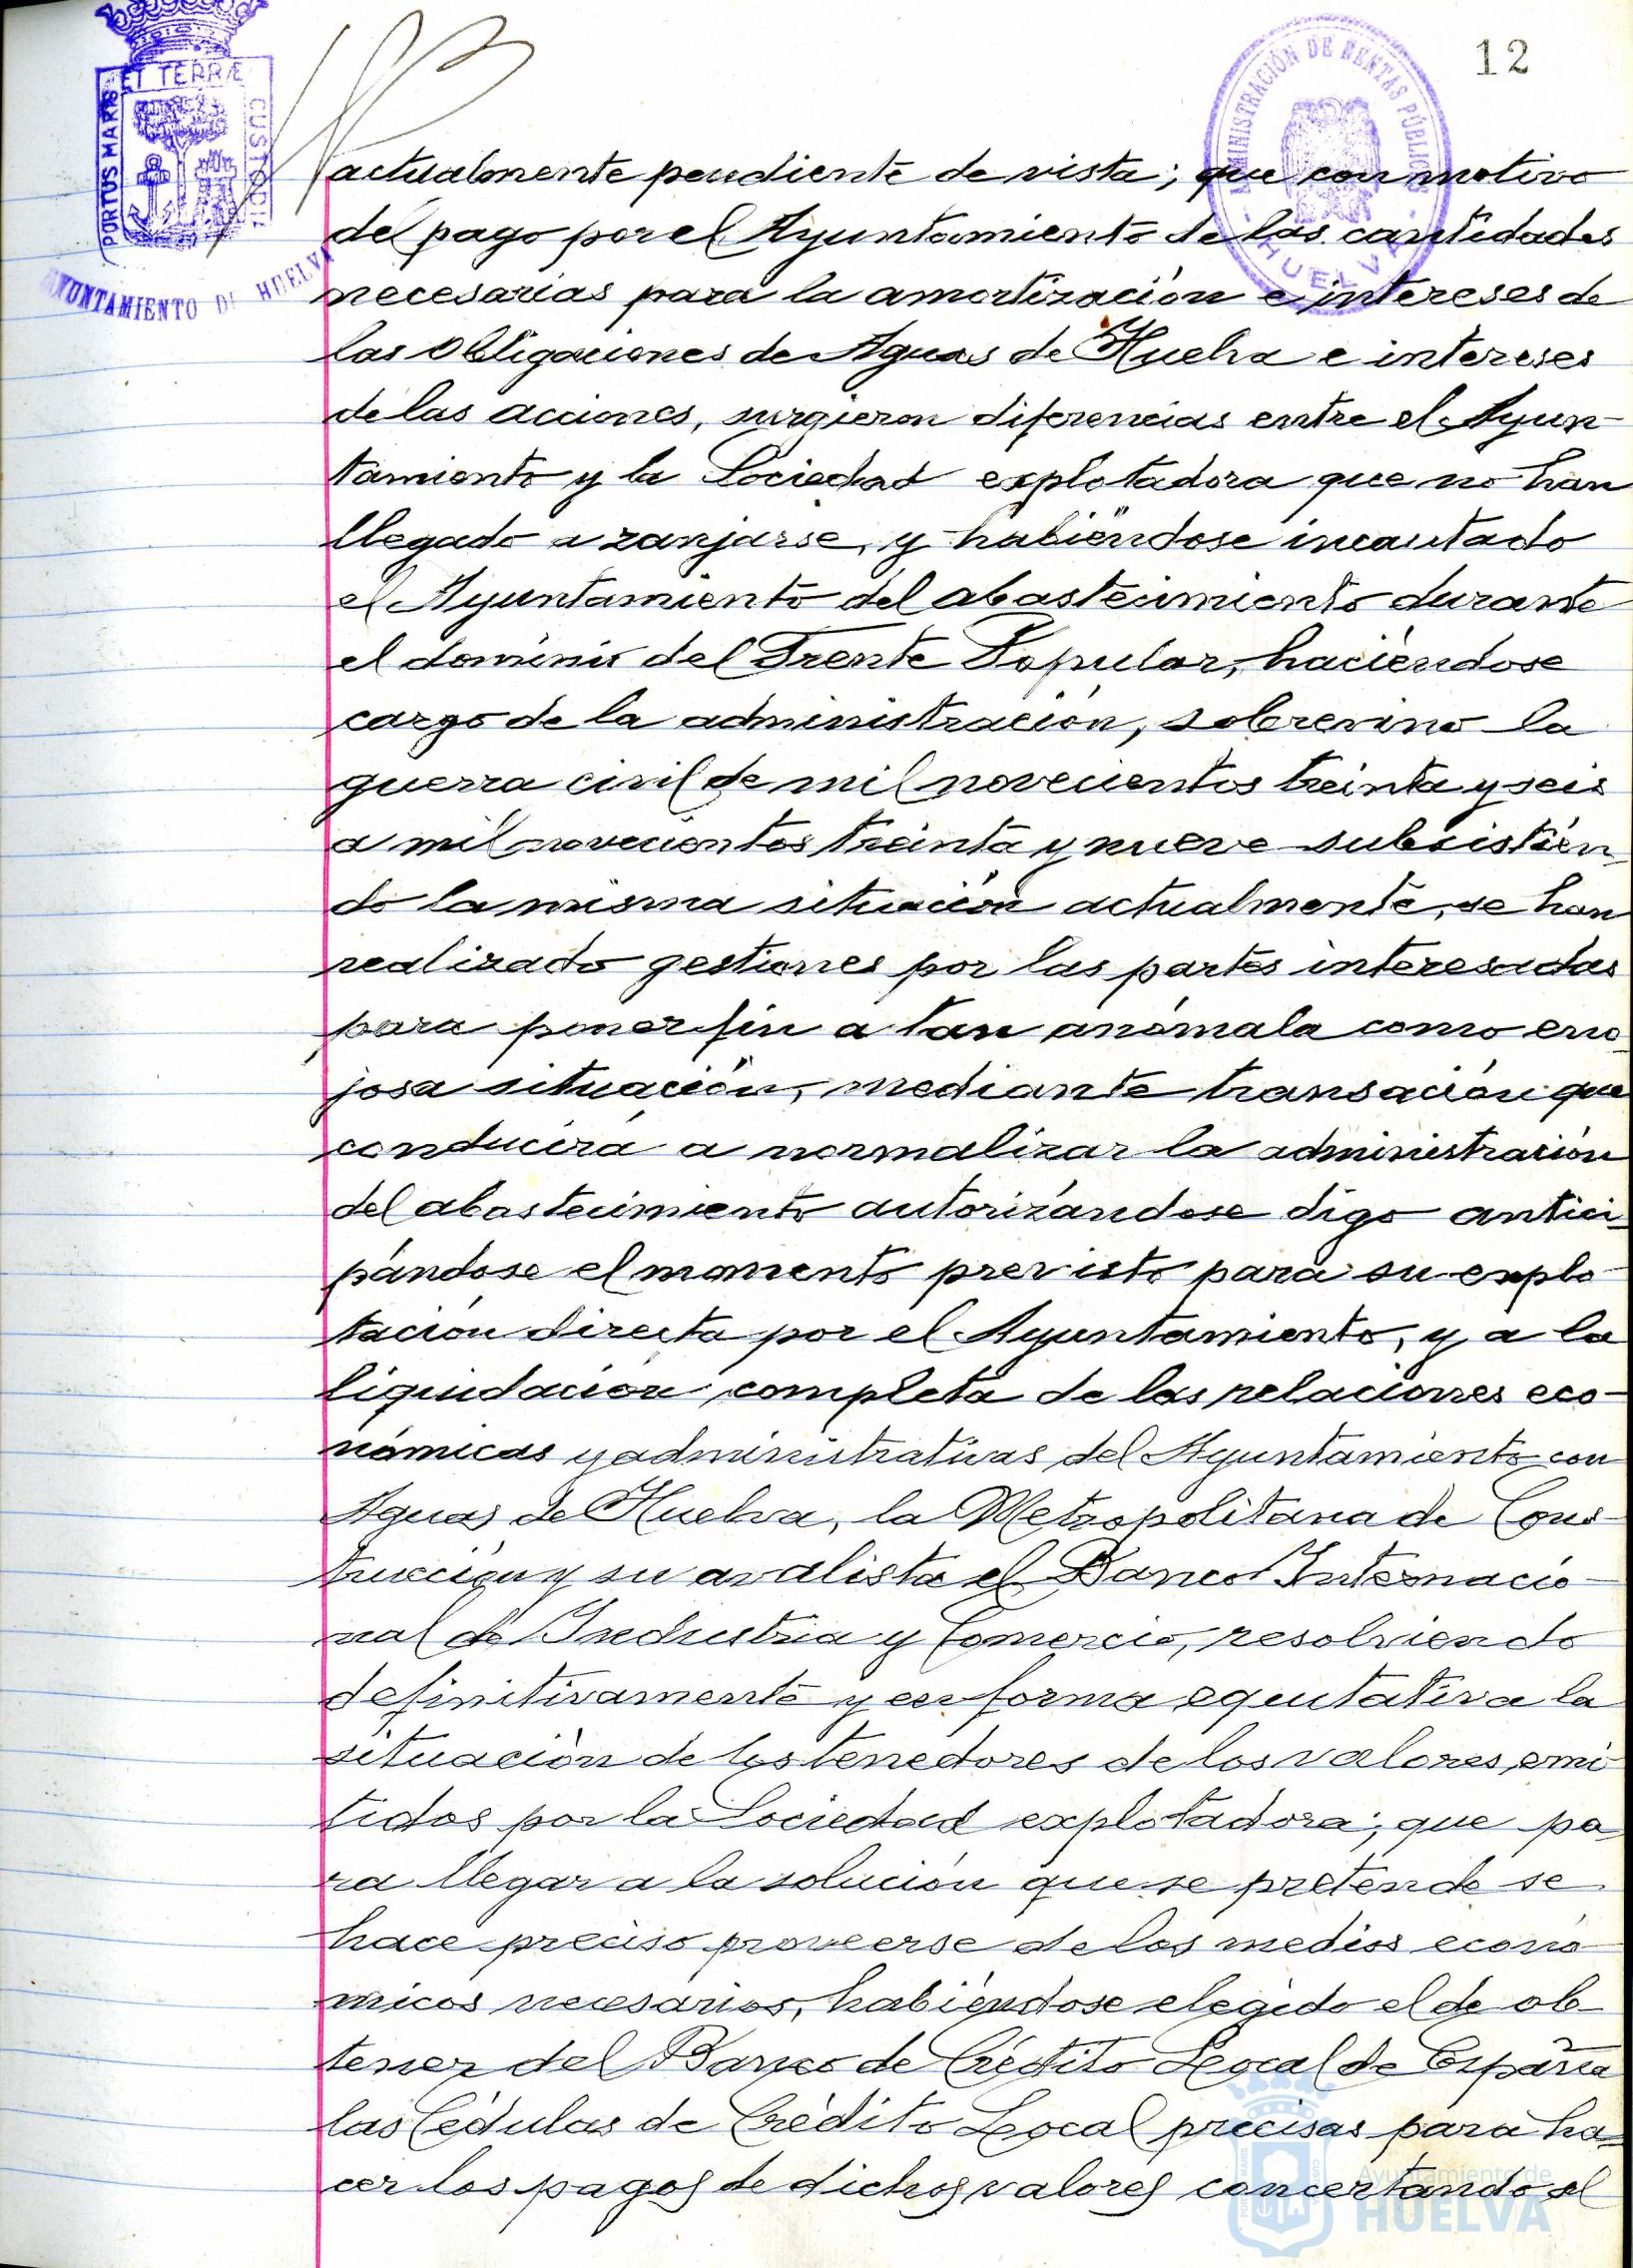 12
ET TERRÆ
PORTUS MARIS
CUSTODIA
AYUNTAMIENTO DE HUELVA
ADMINISTRACIÓN DE RENTAS PÚBLICAS
HUELVA
actualmente pendiente de vista; que con motivo
del pago por el Ayuntamiento de las cantidades
necesarias para la amortización e intereses de
las Obligaciones de Aguas de Huelva e intereses
de las acciones, surgieron diferencias entre el Ayun-
tamiento y la Sociedad explotadora que no han
llegado a zanjarse, y habiéndose incautado
el Ayuntamiento del abastecimiento durante
el dominio del Frente Popular, haciéndose
cargo de la administración, sobrevino la
guerra civil de mil novecientos treinta y seis
a mil novecientos treinta y nueve subsistien-
do la misma situación actualmente, se han
realizado gestiones por las partes interesadas
para poner fin a tan anómala como eno-
josa situación, mediante transación que
conducirá a normalizar la administración
del abastecimiento autorizándose digo antici-
pándose el momento previsto para su explo-
tación directa por el Ayuntamiento, y a la
liquidación completa de las relaciones eco-
nómicas y administrativas del Ayuntamiento con
Aguas de Huelva, la Metropolitana de Cons-
trucción y su avalista el Banco Internacio-
nal de Industria y Comercio, resolviendo
definitivamente y en forma equitativa la
situación de los tenedores de los valores emi-
tidos por la Sociedad explotadora; que pa-
ra llegar a la solución que se pretende se
hace preciso proveerse de los medios econó-
micos necesarios, habiéndose elegido el de ob-
tener del Banco de Crédito Local de España
las Cédulas de Crédito Local precisas para ha-
cer los pagos de dichos valores concertando el
Ayuntamiento de
HUELVA